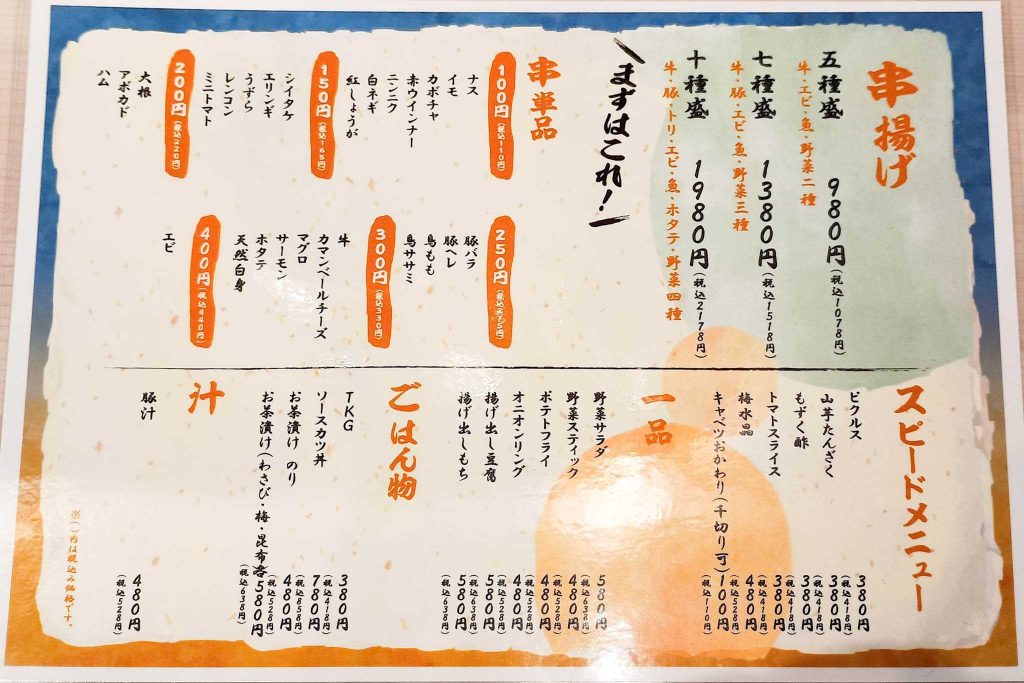 串揚げ
五種盛 980円(税込1078円)
牛・エビ・魚・野菜二種
七種盛 1380円(税込1518円)
牛・豚・エビ・魚・野菜三種
十種盛 1980円(税込2178円)
牛・豚・トリ・エビ・魚・ホタテ・野菜四種
まずはこれ!
串単品
100円(税込110円)
ナス
イモ
カボチャ
赤ウインナー
ニンニク
白ネギ
紅しょうが
150円(税込165円)
シイタケ
エリンギ
うずら
レンコン
ミニトマト
200円(税込220円)
大根
アボカド
ハム
250円(税込275円)
豚バラ
豚ヘレ
鳥もも
鳥ササミ
300円(税込330円)
牛
カマンベールチーズ
マグロ
サーモン
ホタテ
天然白身
400円(税込440円)
エビ
スピードメニュー
ピクルス 380円(税込418円)
山芋たんざく 380円(税込418円)
もずく酢 380円(税込418円)
トマトスライス 380円(税込418円)
梅水晶 480円(税込528円)
キャベツおかわり(千切り可) 100円(税込110円)
一品
野菜サラダ 580円(税込638円)
野菜スティック 480円(税込528円)
ポテトフライ 480円(税込528円)
オニオンリング 480円(税込528円)
揚げ出し豆腐 580円(税込638円)
揚げ出しもち 580円(税込638円)
ごはん物
TKG 380円(税込418円)
ソースカツ丼 780円(税込858円)
お茶漬け のり 480円(税込528円)
お茶漬け(わさび・梅・昆布)各580円(税込638円)
汁
豚汁 480円(税込528円)
※()内は税込み価格です。